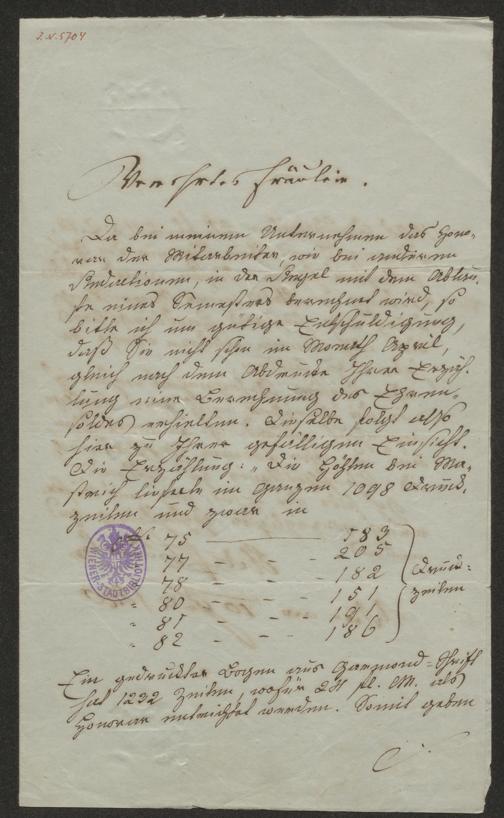 J.N. 5704
Verehrtes Fräulein.
Da bei meinem Unternehmen das Hono-
rar der Mitarbeiter, wie bei anderen
Redactionen, in der Regel mit dem Ablau-
fe eines Semesters berechnet wird, so
bitte ich um gütige Entschuldigung,
daß Sie nicht schon im Monath April,
gleich nach dem Abdrucke Ihrer Erzäh-
lung eine Berechnung des Ehren-
soldes erhielten. Dieselbe folgt also
hier zu Ihrer gefälligen Einsicht.
Die Erzählung: „Die Höhlen bei Ma-
strich lieferte im Ganzen 1098 Druck-
zeilen und zwar in
75 — 183
77 - - - 205
78 - - - 182
80 - - - 151
81 - - - 191
82 - - - 186
Druck-
zeilen
WIENER-STADTBIBLIOTHEK
Ein gedruckter Bogen aus Garmond-Schrift
hat 1232 Zeilen, wofür 24 fl. CM. als
Honorar entrichtet werden. Somit geben